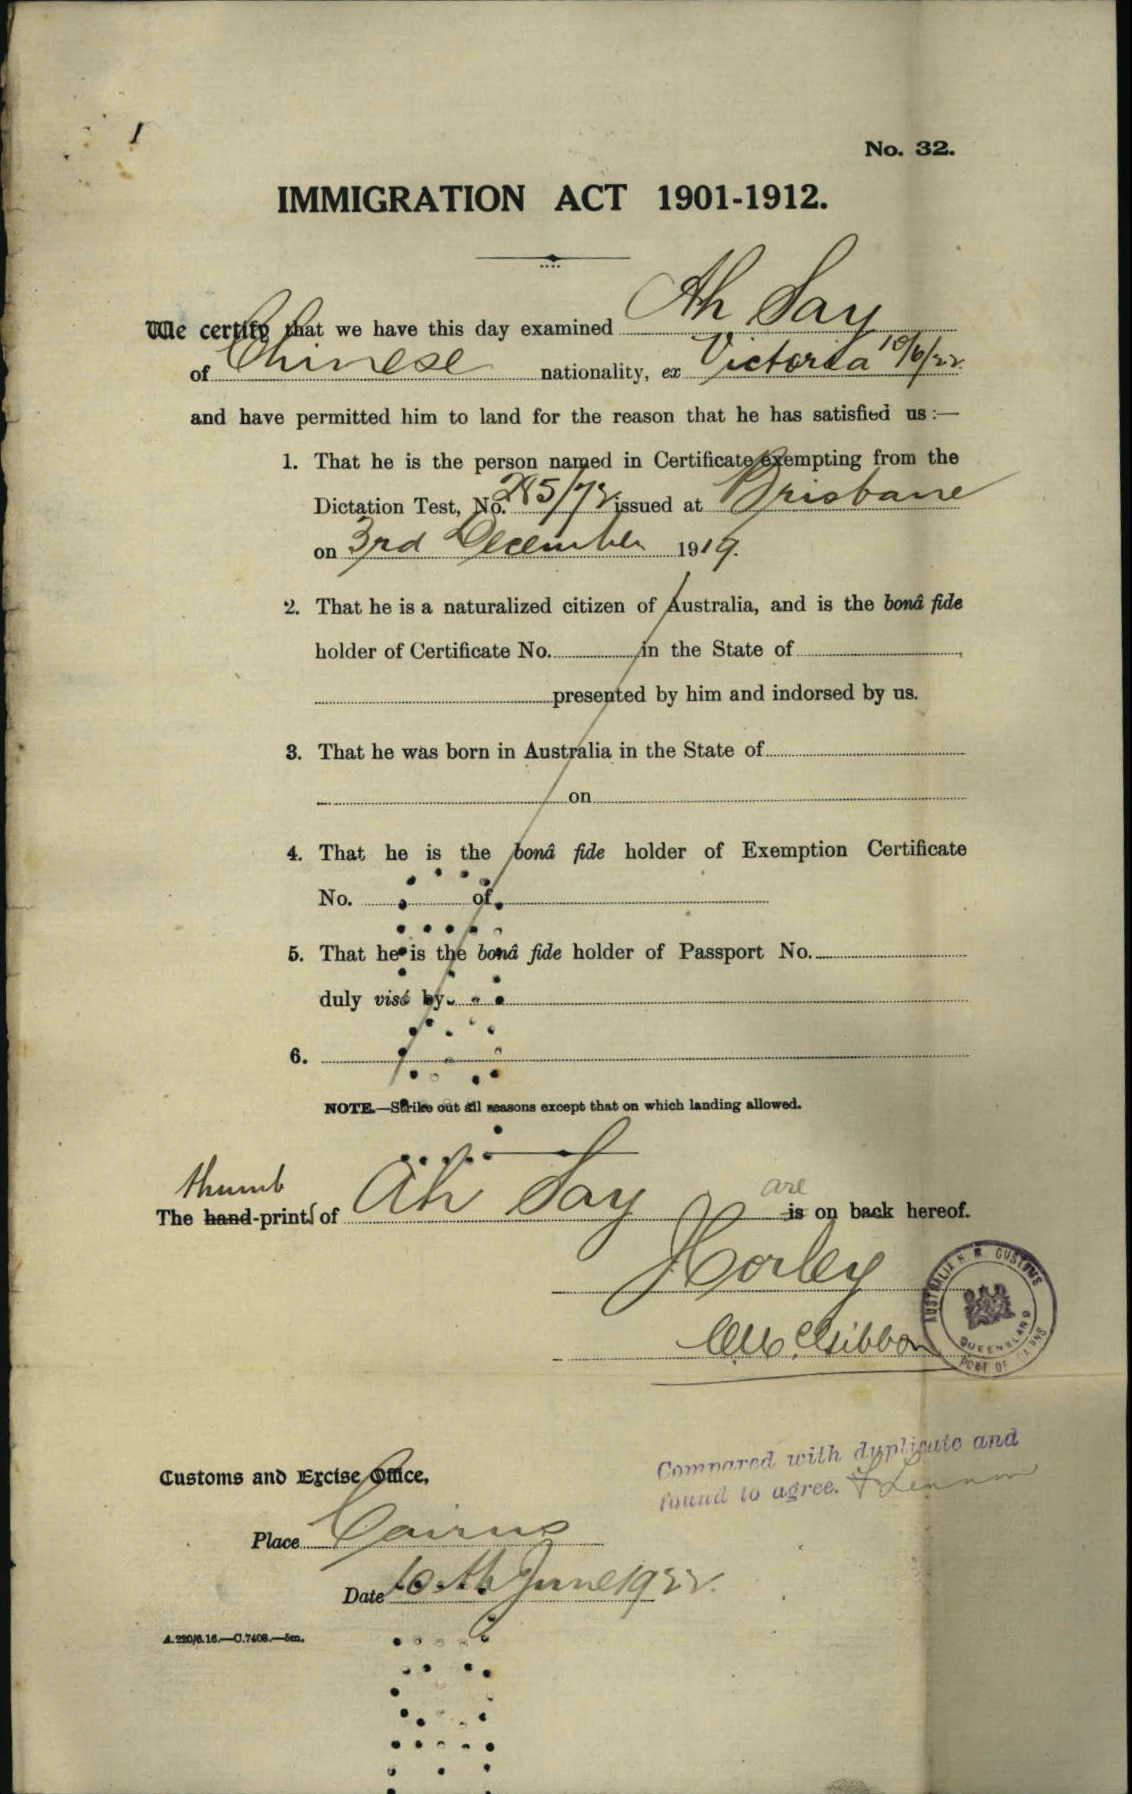 1
No. 32.
IMMIGRATION ACT 1901-1912.
We certify that we have this day examined Ah Say
of Chinese nationality, ex Victoria 10/6/22
and have permitted him to land for the reason that he has satisfied us:—
1. That he is the person named in Certificate exempting from the
Dictation Test, No. 285/72 issued at Brisbane
on 3rd December 1919.
2. That he is a naturalized citizen of Australia, and is the bonâ fide
holder of Certificate No. in the State of ,
presented by him and indorsed by us.
3. That he was born in Australia in the State of
on
4. That he is the bonâ fide holder of Exemption Certificate
No. of
5. That he is the bonâ fide holder of Passport No.
duly visé by
6.
NOTE.—Strike out all reasons except that on which landing allowed.
thumb are
The hand-prints of Ah Say is on back hereof.
Horley
Gibbon
AUSTRALIA H. M. CUSTOMS
QUEENSLAND
PORT OF CAIRNS
Compared with duplicate and
found to agree.
Customs and Excise Office,
Place Cairns
Date 10th June 1922.
A.220/6.16.—C.7408.—5m.